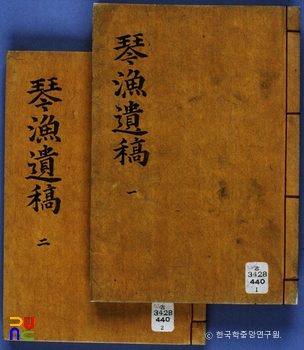 琴漁遺稿 一
古
3428
440
1
琴漁遺稿 二
古
3428
440
2
PUNC
© 한국학중앙연구원.